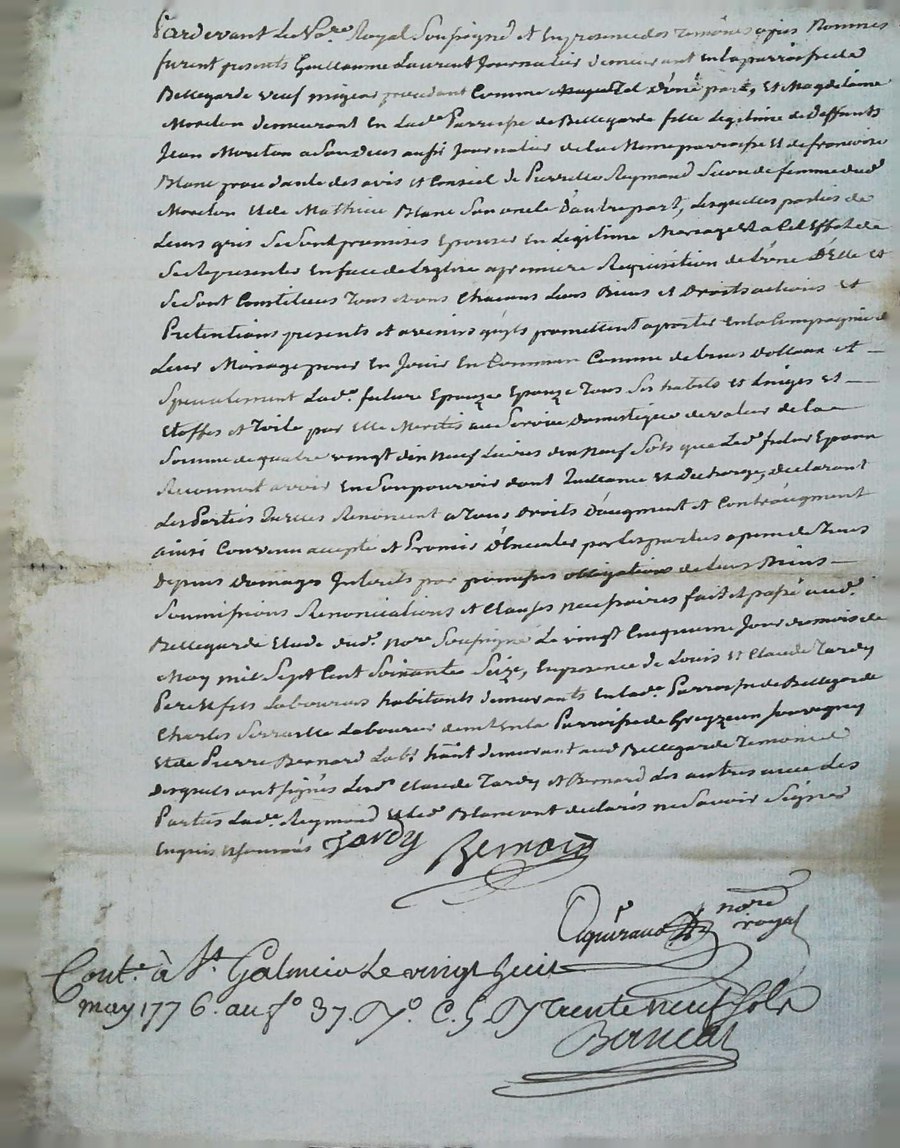 Pardevant Le No.re Royal Soussigné et En presence des Temoins apres Nommes
furent presents Guillaume Laurent Journalier demeurant En la parroisse de
Bellegarde veuf migeur procedant Comme Magued d'une part, Et Magdelaine
Moreton demeurant En Lad.e Parroisse de Bellegarde fille Legitime de deffunts
Jean Moreton a Son Deces aussi Journalier de la Meme parroisse et de francoise
Blanc procedante des avis et Conseil de Pierrette Reymond Seconde femme dud.
Moreton et de Mathieu Blanc Son oncle d'autre part, Lesquelles parties de
Leurs gris Se Sont promises Epouser En Legitime Mariage Et a Cet Effet de
Se Representer En face de L'eglise a premiere Requisition de L'une D'Elle et
Se Sont Constitues Tous et uns Chacuns Leurs Biens et Droits actions et
Pretentions presents et avenirs qu'ils promettent aporter En la Compagnie de
Leur Mariage pour En Jouir En Commun Comme de biens dottaux et
Specialement Lad.e future Epouze Tous Ses habits et Linges et
Etoffes et Toile par Elle Merités au Service domestique de valeur de la
Somme de quatre vingt dix Neuf Livres dix Neuf Sols que Led. futur Epoux
Reconnoit avoir En Son pouvoir dont Quittance Et Decharge, declarant
Les Parties qu'elles Renoncent a Tous Droits D'augment et Contraugment
ainsi Convenu accepté et Promis D'Executer par les parties a peine de Tous
Depens Domages Interets par promesses obligations de Leurs Biens
Soumissions Renonciations et Clauses necessaires fait et passé aud.
Bellegarde Etude dud. No.re Soussigné Le vingt Cinquieme Jour du mois de
May mil Sept Cent Soixante Seize, En presence de Louis et Claude Tardy
Pere et fils Laboureurs habitants demeurants En lad.e Parroisse de Bellegarde
Charles Laboureur dem.t En la Parroisse de
Et de Pierre Bernard Lab.r hant demeurant aud. Bellegarde Temoins
desquels ont signés Lesd. Claude Tardy et Bernard Les autres avec Les
Parties Lad.e Reymond et Led. Blanc ont declarés ne Savoir Signer
Enquis et Sommés Tardy Bernard
no.re
royal
Cont.e à S.t Galmier Le vingt huit
may 1776. au f.o 37. V.o C. 5. R. Trente neuf Sols